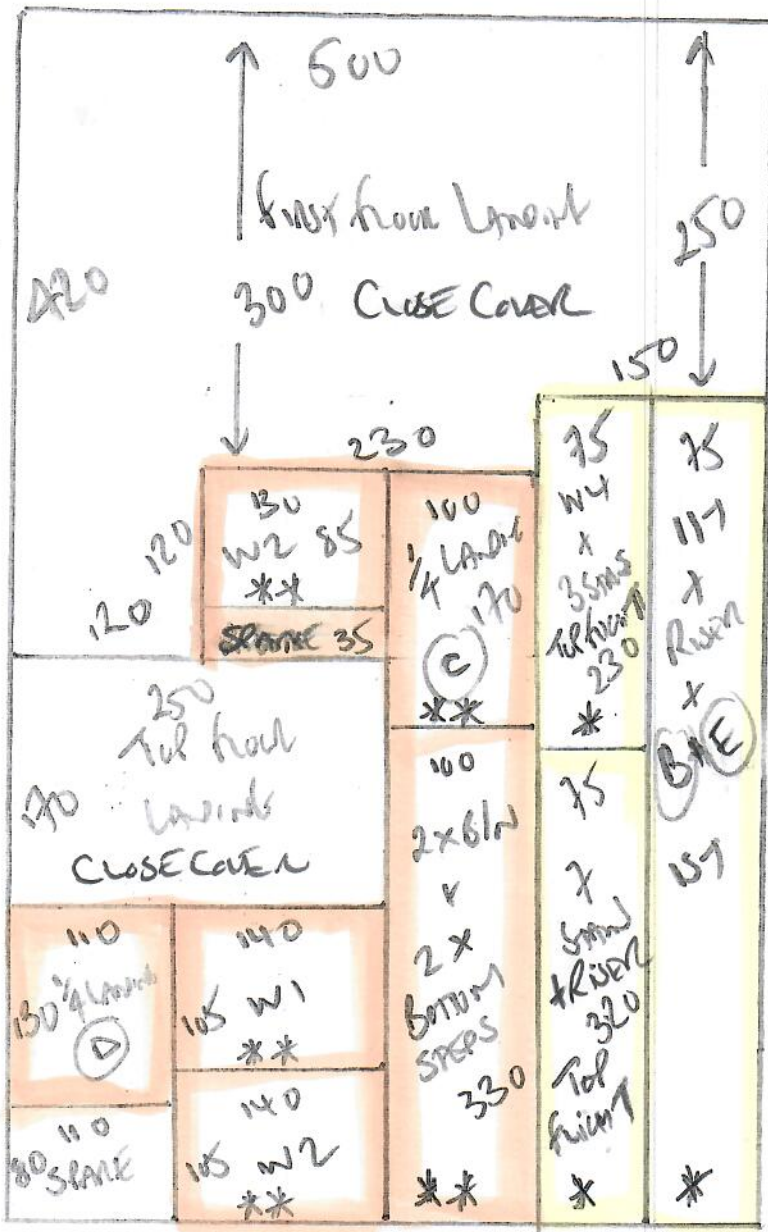 500
First Floor Landing
420
300 CLOSE COVER
250
150
230
130
W2 85
**
SPARE 35
120
120
100
1/4 LANDING
170
C
**
75
W4
X
3 STAIRS
TOP FLIGHT
230
*
75
X
RISER
X
B E
*
250
TOP FLOOR
LANDING
170
CLOSE COVER
100
2 X B/N
2 X
BOTTOM
STEPS
330
**
75
7
STAIR
+ RISER
320
TOP
FLIGHT
*
110
130 1/4 LANDING
D
140
105 W1
**
110
80 SPARE
140
105 W2
**